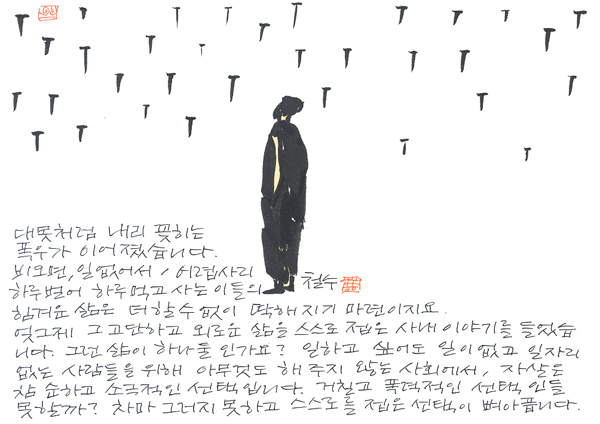 대못처럼 내리 꽂히는
폭우가 이어졌습니다.
비오면, 일없어서, 어렵사리
하루벌어 하루먹고 사는 이들의
철수
힘겨운 삶은 더할수없이 딱해지기 마련이지요.
엊그제 그 고단하고 외로운 삶을 스스로 접은 사내 이야기를 들었습
니다. 그런 삶이 하나둘 인가요? 일하고 싶어도 일이 없고 일자리
없는 사람들을 위해 아무것도 해 주지 않는 사회에서, 자살은
참 순하고 소극적인 선택입니다. 거칠고 폭력적인 선택인들
못할까? 차마 그러지 못하고 스스로를 접은 선택이 뼈아픕니다.